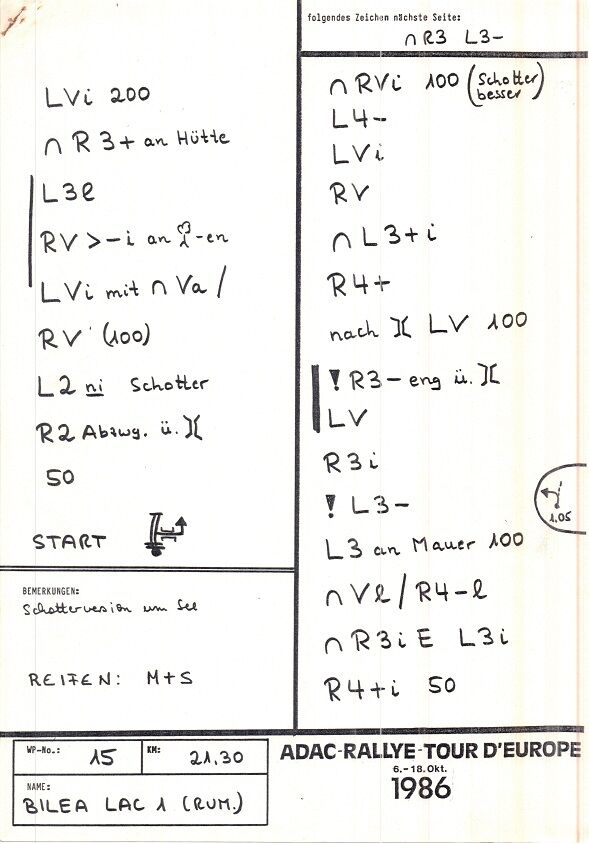 folgendes Zeichen nächste Seite:
∩ R3 L3-
LVi 200
∩ R3+ an Hütte
L3l
RV >-i an -en
LVi mit ∩ Va /
RV (100)
L2 ni Schotter
R2 Abzwg. ü. )(
50
START
BEMERKUNGEN:
Schotterversion um See
REIFEN: M+S
∩ RVi 100 (Schotter
besser)
L4-
LVi
RV
∩ L3+i
R4+
nach )( LV 100
! R3- eng ü. )(
LV
R3i
! L3-
1.05
L3 an Mauer 100
∩ Vl / R4-l
∩ R3i E L3i
R4+i 50
WP-No.: 15 KM: 21,30
NAME:
BILEA LAC 1 (RUM.)
ADAC-RALLYE-TOUR D'EUROPE
6.-18. Okt.
1986